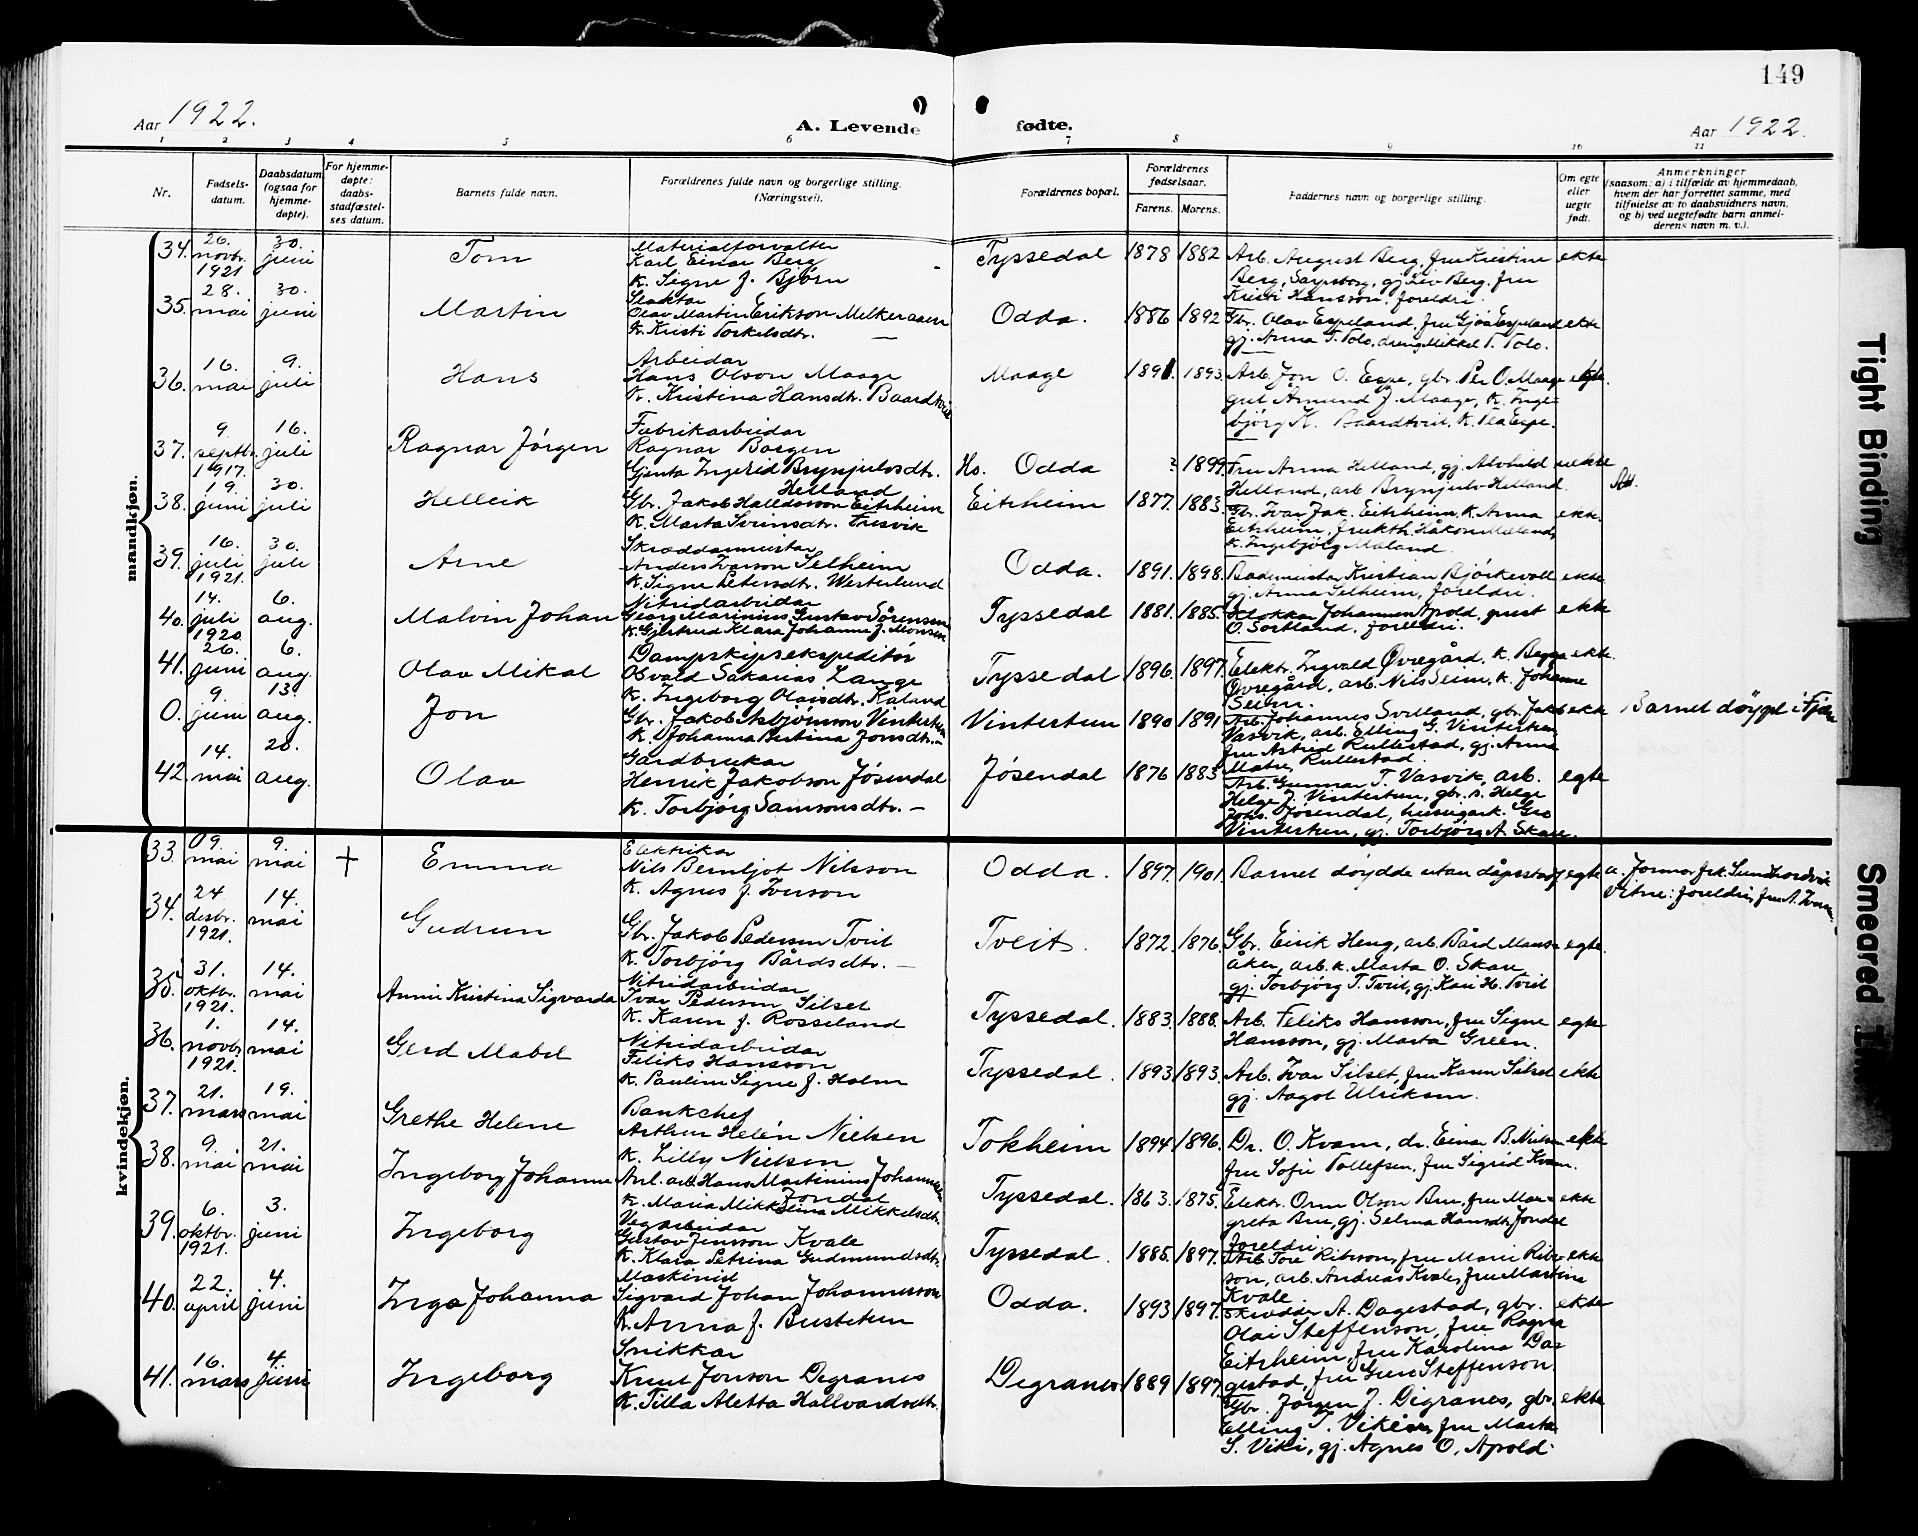 149
Aar 1922.
A. Levende fødte.
Aar 1922.
1 2 3 4 5 6 7 8 9 10 11
Nr.
Fødsels-
datum.
Daabsdatum
(ogsaa for
hjemme-
døpte).
For hjemme-
døpte:
daabs-
stadfæstel-
ses datum.
Barnets fulde navn.
Forældrenes fulde navn og borgerlige stilling.
(Næringsvei).
Forældrenes bopæl.
Forældrenes
fødselsaar.
Farens. Morens.
Faddernes navn og borgerlige stilling.
Om egte
eller
uegte
født.
Anmerkninger
(saasom: a) i tilfælde av hjemmedaab,
hvem der har forrettet samme, med
tilføielse av to daabsvidners navn,
og b) ved uegtefødte barn anmel-
derens navn m. v.).
mandkjøn.
34. 26. novbr. 1921 30. juni Tom
Materialforvalter
Karl Einar Berg
K. Signe f. Bjørn
Tyssedal 1878 1882
Arb. August Berg, fru Kristine
Berg, Sarpsborg, gj. Liv Berg, fru
Kristi Hansson, foreldri.
ekte
35. 28. mai 30. juni Martin
Slaktar
Olav Martin Erikson Melkeraaen
K. Kristi Torkelsdtr. —
Odda. 1886 1892
Gbr. Olav Espeland, fru Gjøa Espeland
gj. Anna T. Tolo, dreng Mikkel T. Tolo.
ekte
36. 16. mai 9. juli Hans
Arbeidar
Hans Olson Maage
K. Kristina Hansdtr. Baardtvid
Maage 1891. 1893.
Arb. Jon O. Espe, gbr. Per O. Maage
gut Amund J. Maage, K. Inge-
björg K. Baardtvid, K. Tea Espe.
egte.
37. 9. septbr. 1917. 16. juli Ragnar Jørgen
Fabrikarbeidar
Ragnar Borgen
Gjenta Ingerid Brynjulvsdtr.
Helland
Hs. Odda ? 1899.
Fru Anna Helland, gj. Alvhild
Helland, arb. Brynjulv Helland.
uekte
38. 19. juni 30. juli Helleik
Gbr. Jakob Halldorson Eitrheim
K. Marta Sveinsdtr. Fresvik
Eitrheim 1877. 1883.
Gbr. Ivar Jak. Eitrheim, K. Anna
Eitrheim, frukth. Håkon Mæland,
K. Ingebjörg Mæland.
ekte.
39. 16. juli 1921. 30. juli Arne
Skræddarmeistar
Anders Ivarson Selheim
K. Signe Petersdtr. Westerlund
Odda. 1891. 1898.
Bademeistar Kristian Bjørkevoll
gj. Anna Selheim, foreldri.
ekte
40. 14. juli 1920. 6. aug. Malvin Johan
Nitridarbeidar
Georg Marinius Gustav Sörensen
K. Gjertrud Klara Johanna f. Monsen
Tyssedal 1881. 1885.
Klokkar Johannes Apold, prest
O. Sortland, foreldri.
ekte
41. 26. juni 6. aug. Olav Mikal
Dampskipsekspeditör
Osvald Sakarias Lange
K. Ingeborg Olaisdtr. Kaland
Tyssedal 1896. 1897.
Elektr. Ingvald Øvregård, K. Berta
Øvregård, arb. Nils Seim, K. Johanne
Seim.
ekte.
0. 9. juni 13. aug. Jon
Gbr. Jakob Asbjönson Vintertun
K. Johanna Bertina Jonsdtr. —
Vintertun 1890 1891
Arb. Johannes Svelland, gbr. Jakob
Vasvik, arb. Elling G. Vintertun
fru Astrid Rullestad, gj. Anna
Matre Rullestad.
ekte
Barnet döypt i Fjæra
42. 14. mai 20. aug. Olav
Gardbrukar
Henrik Jakobson Jösendal
K. Torbjörg Samsonsdtr. —
Jøsendal 1876 1883
Arb. Gunnar T. Vasvik, arb.
Helge J. Vintertun, gbr. s. Helge
Johs. Jösendal, huseigark. Gro
Vintertun, gj. Torbjörg A. Skare.
egte
kvindekjøn.
33. 09. mai 9. mai + Emma
Elektrikar
Nils Bernljot Nilsson
K. Agnes f. Iverson
Odda. 1897. 1901.
Barnet döydde utan dåpsstadf.
egte
34. 24 desbr. 1921. 14. mai Gudrun
Gbr. Jakob Pederson Tveit
K. Torbjörg Bårdsdtr. —
Tveit. 1872. 1876.
Gbr. Eirik Heng, arb. Bård Mans-
åker, arb. k. Marta O. Skare
gj. Torbjörg T. Tveit, gj. Kari H. Tveit
egte.
35. 31. oktbr. 1921. 14. mai Anna Kristina Sigvarda
Nitridarbeidar
Ivar Pederson Silset
K. Karen f. Rosseland
Tyssedal. 1883. 1888.
Arb. Feliks Hansson, fru Signe
Hansson, gj. Marta Green.
egte
36. 1. novbr. 1921. 14. mai Gerd Mabel
Nitridarbeidar
Feliks Hansson
K. Pauline Signe f. Holm
Tyssedal. 1893. 1893.
Arb. Ivar Silset, fru Karen Silset
gj. Aagot Ulriksen.
ekte
37. 21. mars 19. mai Grethe Helene
Bankchef
Arthur Helén Nielsen
K. Lilly Nielsen
Tokheim 1894. 1896.
Dr. O. Kvam, dr. Einar B. Nielsen
fru Sofie Tollefsen, fru Sigrid Kvam.
ekte
38. 9. mai 21. mai Ingeborg Johanne
Anl. arb. Hans Martinius Johannesen
Jondal
K. Maria Mikkeline Mikkelsdtr.
Tyssedal. 1863. 1875.
Elektr. Orm Olson Bru, fru Mar-
greta Bru, gj. Selma Hansdtr. Jondal
foreldri
ekte
39. 6. oktbr. 1921. 3. juni Ingeborg
Vegarbeidar
Gustav Jensson Kvale
K. Klara Petrina Gudmundsdtr.
Tyssedal. 1885. 1897.
Arb. Tore Riberson, fru Marie Riber-
son, arb. Andreas Kvale, fru Martina
Kvale
ekte
40. 22. april 4. juni Inga Johanna
Maskinist
Sigvard Johan Johannesson
K. Anna f. Bustetun
Odda. 1893 1897.
Skredder A. Dagestad, gbr.
Olai Steffenson, fru Ragna
Eitrheim, fru Karolina Da-
gestad, fru Guri Steffenson
ekte
41. 16. mars 4. juni Ingeborg
Snikkar
Knut Jonson Degranes
K. Tilla Aletta Hallvardsdtr.
Degranes 1889 1897.
Gbr. Jørgen J. Digranes, gbr.
Elling T. Vikeim, fru Marta
S. Viki, gj. Agnes O. Apold.
ekte
Tight Binding
Smeared